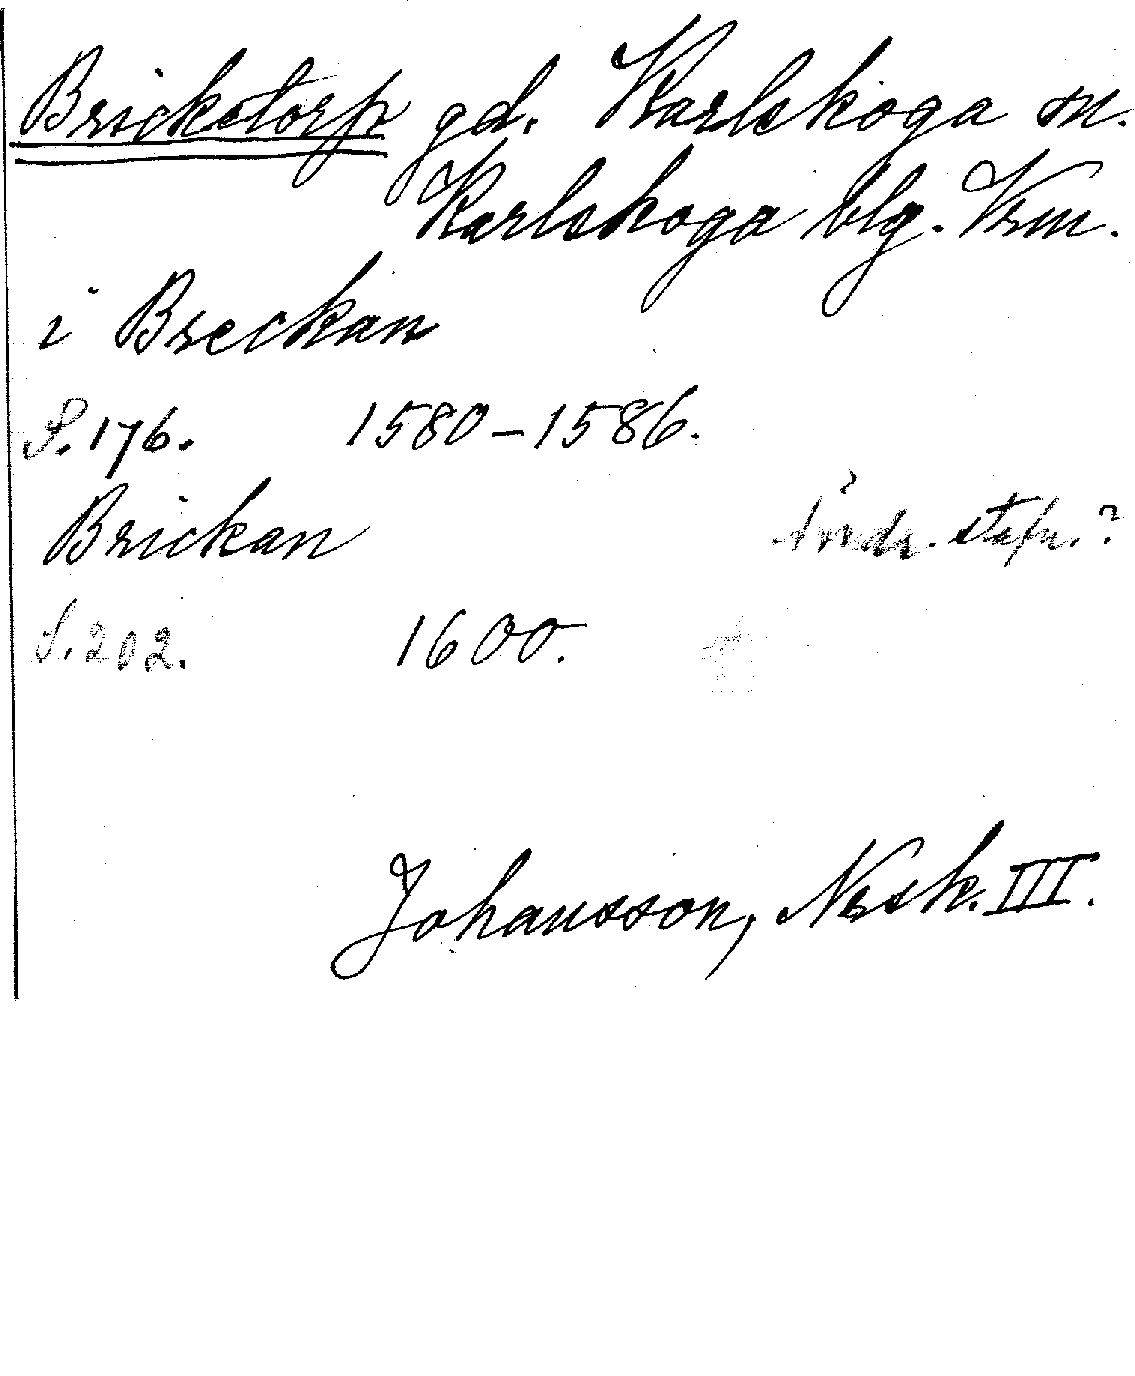 Brickstorp gd. Karlskoga sn.
Karlskoga blg. Vrm.
i Breckan
S. 176. 1580-1586.
Brickan
stafn.?
S. 202. 1600.
Johansson, Nssk. III.